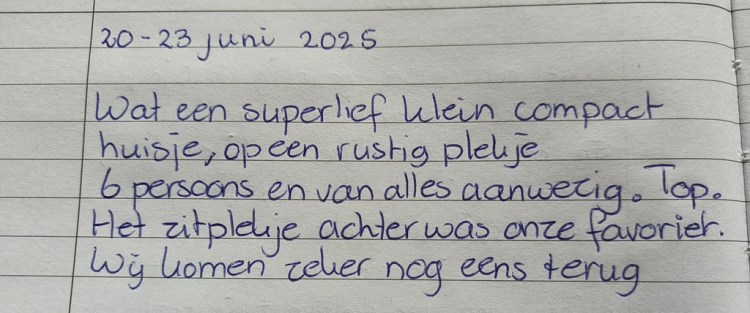 20-23 juni 2025
Wat een superlief klein compact
huisje, op een rustig plekje
6 persoons en van alles aanwezig. Top.
Het zitplekje achter was onze favoriet.
Wij komen zeker nog eens terug